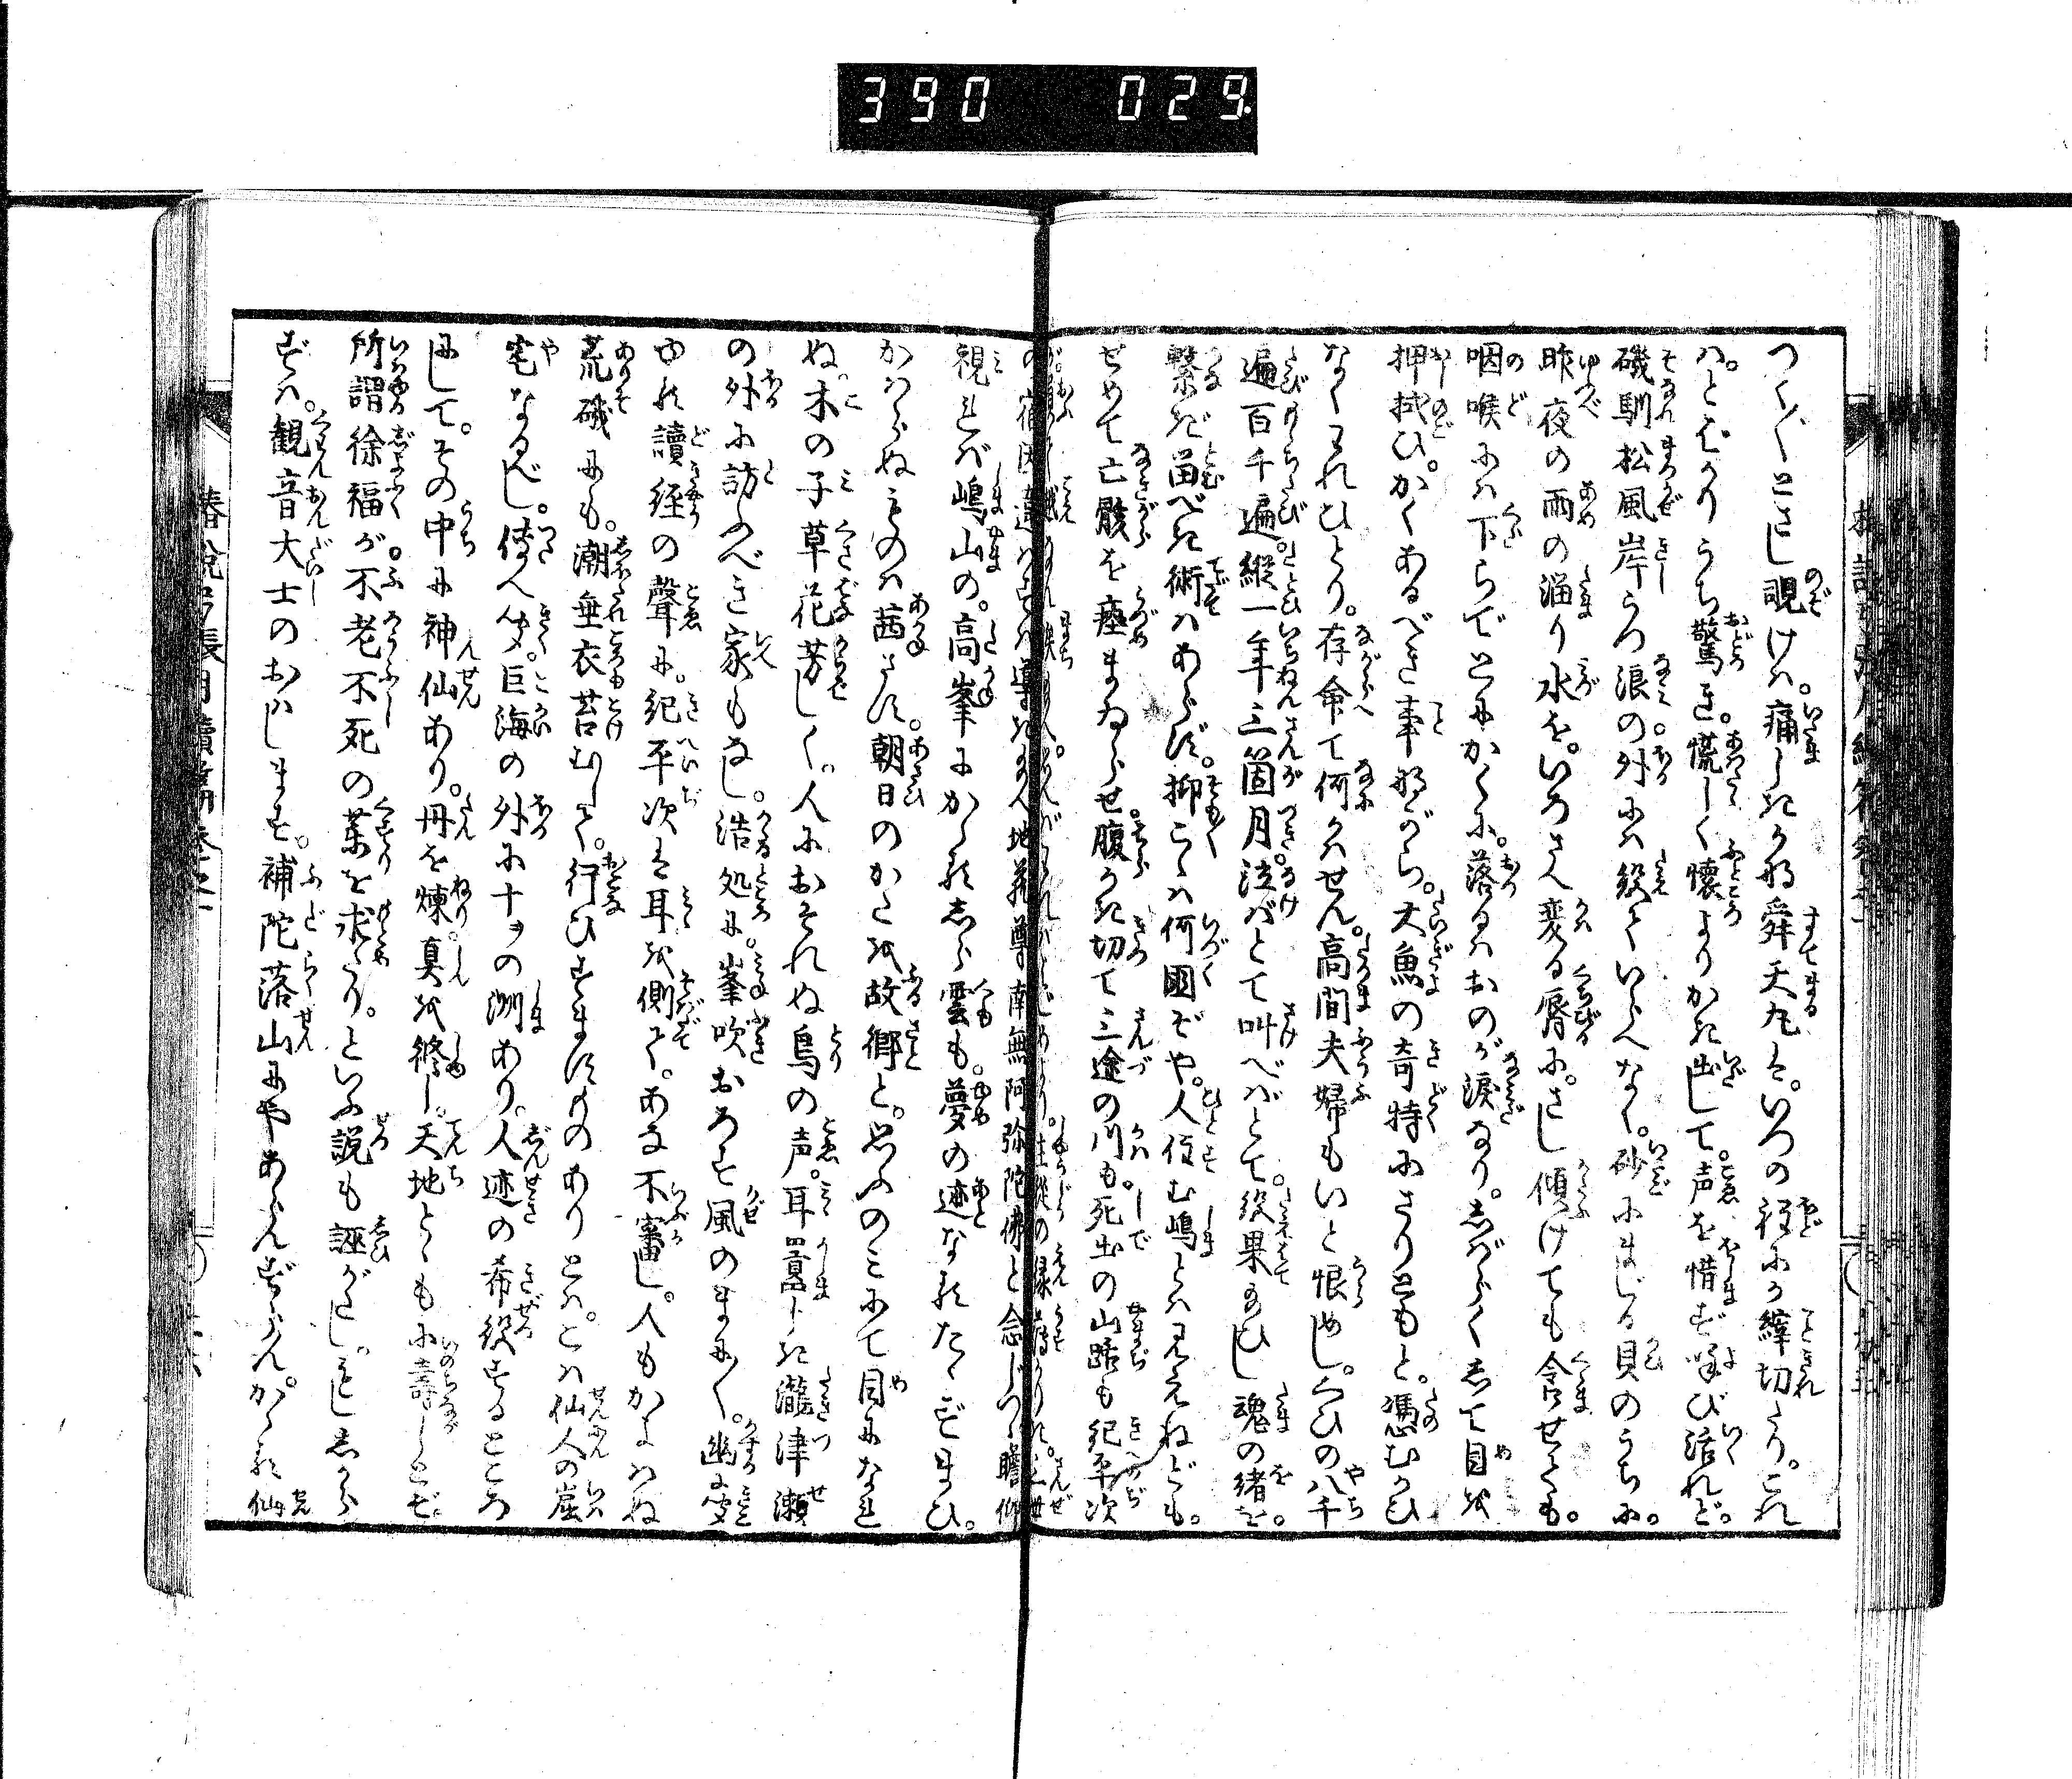 390 029.
つく〴〵とさし覗けは。痛しきかな舜天丸は。いつの程にか縡切たり。これ
はとばかりうち驚き。慌しく懐よりかき出して。声を惜まず喚び活れど。
磯馴松風岸うつ浪の外には絶ていらへなく。砂にまじる貝のうちに。
昨夜の雨の溜り水を。いろさへ変る唇に。さし傾けても含せても。
咽喉には下らでとにかくに。落るはおのが涙なり。しばらくして目を
押拭ひ。かくあるべき事ながら。大魚の奇特にさりともと。憑むかひ
なくわれひとり。存命て何かはせん。高間夫婦もいと恨めし。云ひの八千
遍百千遍。縦一年三箇月。泣ばとて叫べばとて。絶果給ひし魂の緒を。
繋ぎ留べき術はあらず。抑こゝは何国ぞや。人住む嶋とは見えねども。
せめて亡骸を瘞まゐらせ。腹かき切て三途の川も。死出の山路も紀平次
の宿因違はずは導き給へ地蔵尊南無阿弥陀佛と念じつゝ瞻仰
視れば嶋山の。高峯にかゝるしら雲も。夢の迹なるたゝずまひ。
かはらぬものは茜さす。朝日のかたを故郷と。思ふのみにて目になれ
ぬ。木の子草花芳しく。人におそれぬ鳥の声。耳囂しき瀧津瀬
の外に訪ふべき家もなし。浩処に。峯吹おろす風のまに〳〵。幽に聞
ゆる讀経の聲に。紀平次は耳を側て。あな不審し。人もかよはぬ
荒磯にも。潮垂衣苔むして。行ひすますものありとは。こは仙人の崫
宅なるべし。傳へ聞。巨海の外に十ヲの洲あり。人迹の希絶するところ
にして。その中に神仙あり。丹を煉真を修し。天地とゝもに壽しとぞ
所謂徐福が。不老不死の薬を求たり。といふ説も誣がたし。もししから
ずは。観音大士のおはします。補陀落山にやあらんずらん。かゝる仙